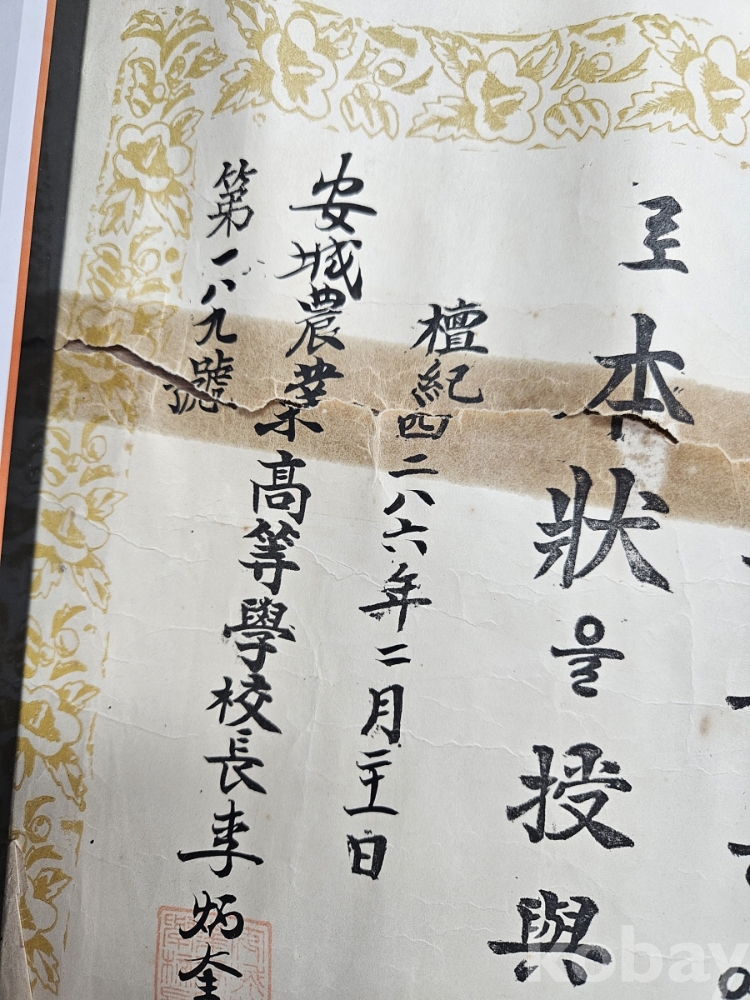 로 本狀을授與
檀紀四二八六年二月二十一日
安城農業高等學校長 李炳奎
第一八九號
kobay